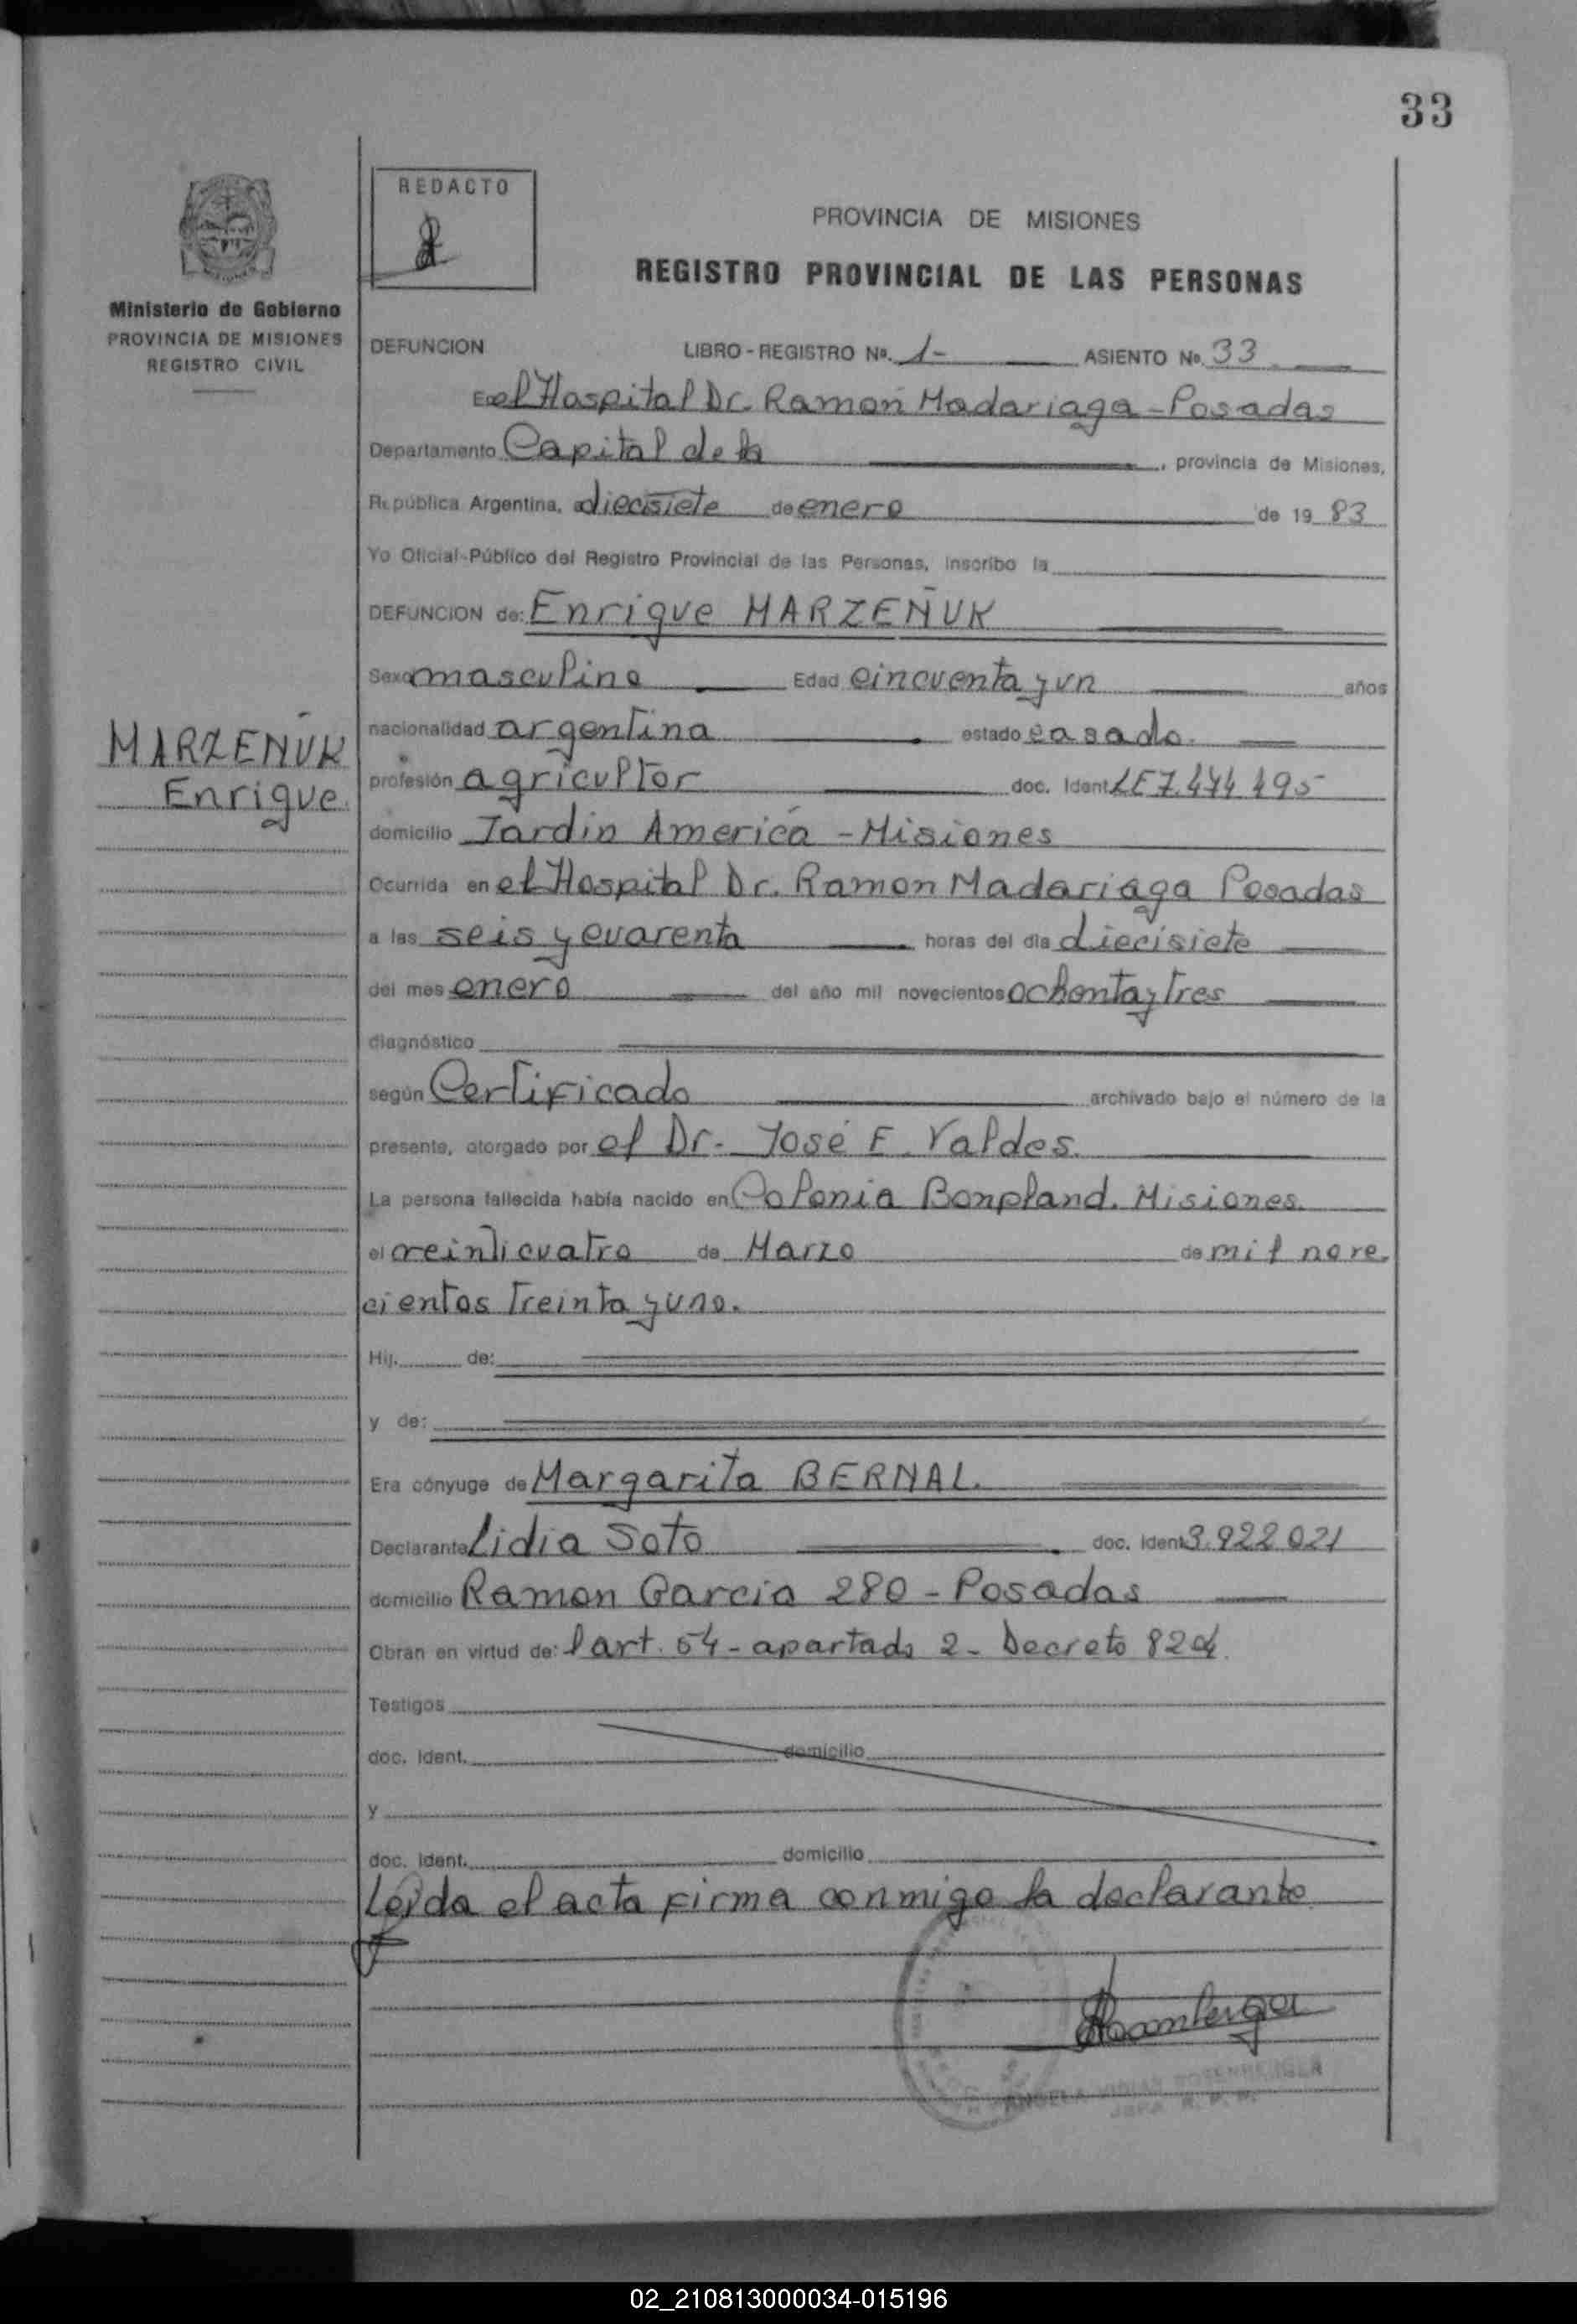 33
REDACTO
PROVINCIA DE MISIONES
REGISTRO PROVINCIAL DE LAS PERSONAS
Ministerio de Gobierno
PROVINCIA DE MISIONES
REGISTRO CIVIL
DEFUNCION LIBRO - REGISTRO Nº. 1- ASIENTO No. 33
En el Hospital Dr. Ramon Madariaga - Posadas
Departamento Capital de la , provincia de Misiones,
República Argentina, a diecisiete de enero de 19 83
Yo Oficial Público del Registro Provincial de las Personas, inscribo la
DEFUNCION de: Enrique MARZEÑUK
Sexo masculino Edad cincuenta y un años
nacionalidad argentina estado casado.
MARZEÑUK
Enrique
profesión agricultor doc. Ident. LE 7.474 495
domicilio Jardin América - Misiones
Ocurrida en el Hospital Dr. Ramon Madariaga Posadas
a las seis y cuarenta horas del día diecisiete
del mes enero del año mil novecientos ochenta y tres
diagnóstico
según Certificado archivado bajo el número de la
presente, otorgado por el Dr. José E. Valdes.
La persona fallecida había nacido en Colonia Bonpland. Misiones.
el veinticuatro de Marzo de mil nove.
cientos treinta y uno.
Hij. de:
y de:
Era cónyuge de Margarita BERNAL.
Declarante Lidia Soto doc. Ident. 3.922.021
domicilio Ramon Garcia 280 - Posadas
Obran en virtud de: l art. 54 - apartado 2 - Decreto 8204.
Testigos
doc. Ident. domicilio
y
doc. Ident. domicilio
Leída el acta firma conmigo la declarante
ANGELA VIVIAN ROSENBERGER
JEFA R. P. P.
02_210813000034-015196